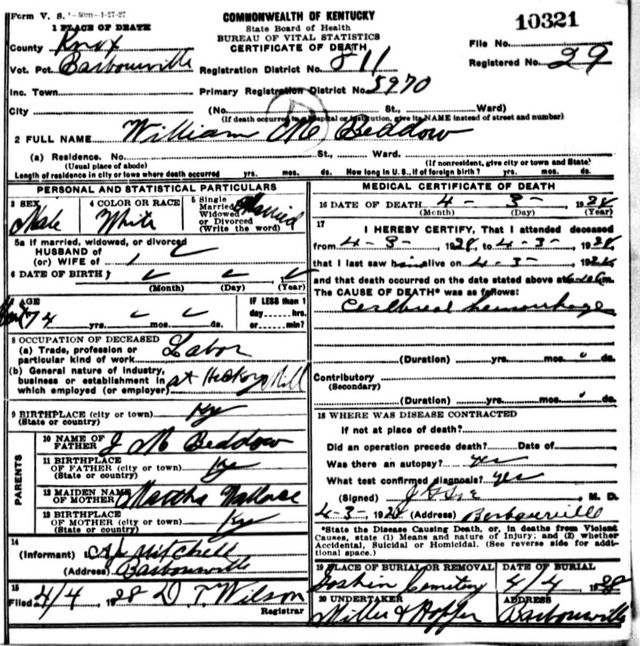 Form V. S.
COMMONWEALTH OF KENTUCKY
State Board of Health
BUREAU OF VITAL STATISTICS
CERTIFICATE OF DEATH
10321
1 PLACE OF DEATH
County Knox
File No.
Vot. Pct. Barbourville
Registration District No. 811
Registered No. 29
Inc. Town
Primary Registration District No. 5970
City (No. St., Ward)
(If death occurred in a hospital or institution, give its NAME instead of street and number)
2 FULL NAME William M. Beddow
(a) Residence. No. St., Ward.
(Usual place of abode) (If nonresident, give city or town and State)
Length of residence in city or town where death occurred yrs. mos. ds. How long in U. S., if of foreign birth? yrs. mos. ds.
PERSONAL AND STATISTICAL PARTICULARS
3 SEX Male
4 COLOR OR RACE White
5 Single Married Widowed or Divorced (Write the word) Married
5a If married, widowed, or divorced
HUSBAND of
(or) WIFE of
6 DATE OF BIRTH
(Month) (Day) (Year)
7 AGE
74 yrs. mos. ds.
IF LESS than 1 day hrs. or min.
8 OCCUPATION OF DECEASED
(a) Trade, profession or particular kind of work Labor
(b) General nature of Industry, business or establishment in which employed (or employer) at Hickory Mill
9 BIRTHPLACE (city or town) Ky
(State or country)
PARENTS
10 NAME OF FATHER J M Beddow
11 BIRTHPLACE OF FATHER (city or town) Ky
(State or country)
12 MAIDEN NAME OF MOTHER Martha Wallace
13 BIRTHPLACE OF MOTHER (city or town) Ky
(State or country)
14
(Informant) Mitchell
(Address) Barbourville
15
Filed 4/4, 1928 D T Wilson
Registrar
MEDICAL CERTIFICATE OF DEATH
16 DATE OF DEATH 4 - 3 - 1928
(Month) (Day) (Year)
17
I HEREBY CERTIFY, That I attended deceased
from 4-3- 1928, to 4-3- 1928
that I last saw him alive on 4-3- 1928
and that death occurred on the date stated above at m.
The CAUSE OF DEATH* was as follows:
Cerebreal hemorrhage
(Duration) yrs. mos. ds.
Contributory
(Secondary)
(Duration) yrs. mos. ds.
18 WHERE WAS DISEASE CONTRACTED
If not at place of death?
Did an operation precede death? Date of
Was there an autopsy? yes
What test confirmed diagnosis? yes
(Signed) M. D.
4-3- 1928 (Address) Barbourville
*State the Disease Causing Death, or, in deaths from Violent
Causes, state (1) Means and nature of Injury; and (2) whether
Accidental, Suicidal or Homicidal. (See reverse side for addi-
tional space.)
19 PLACE OF BURIAL OR REMOVAL Goshin Cemetery
DATE OF BURIAL 4/4 1928
20 UNDERTAKER Miller & Hopper
ADDRESS Barbourville